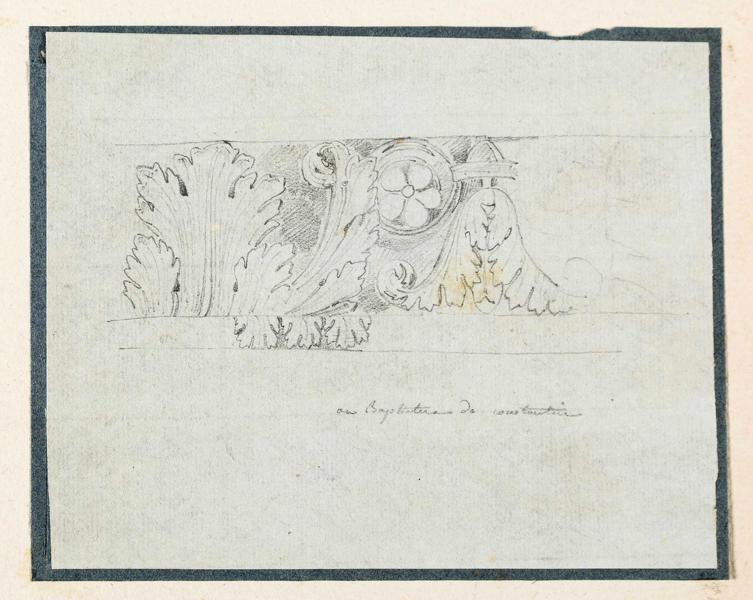 au Baptistere de constantin